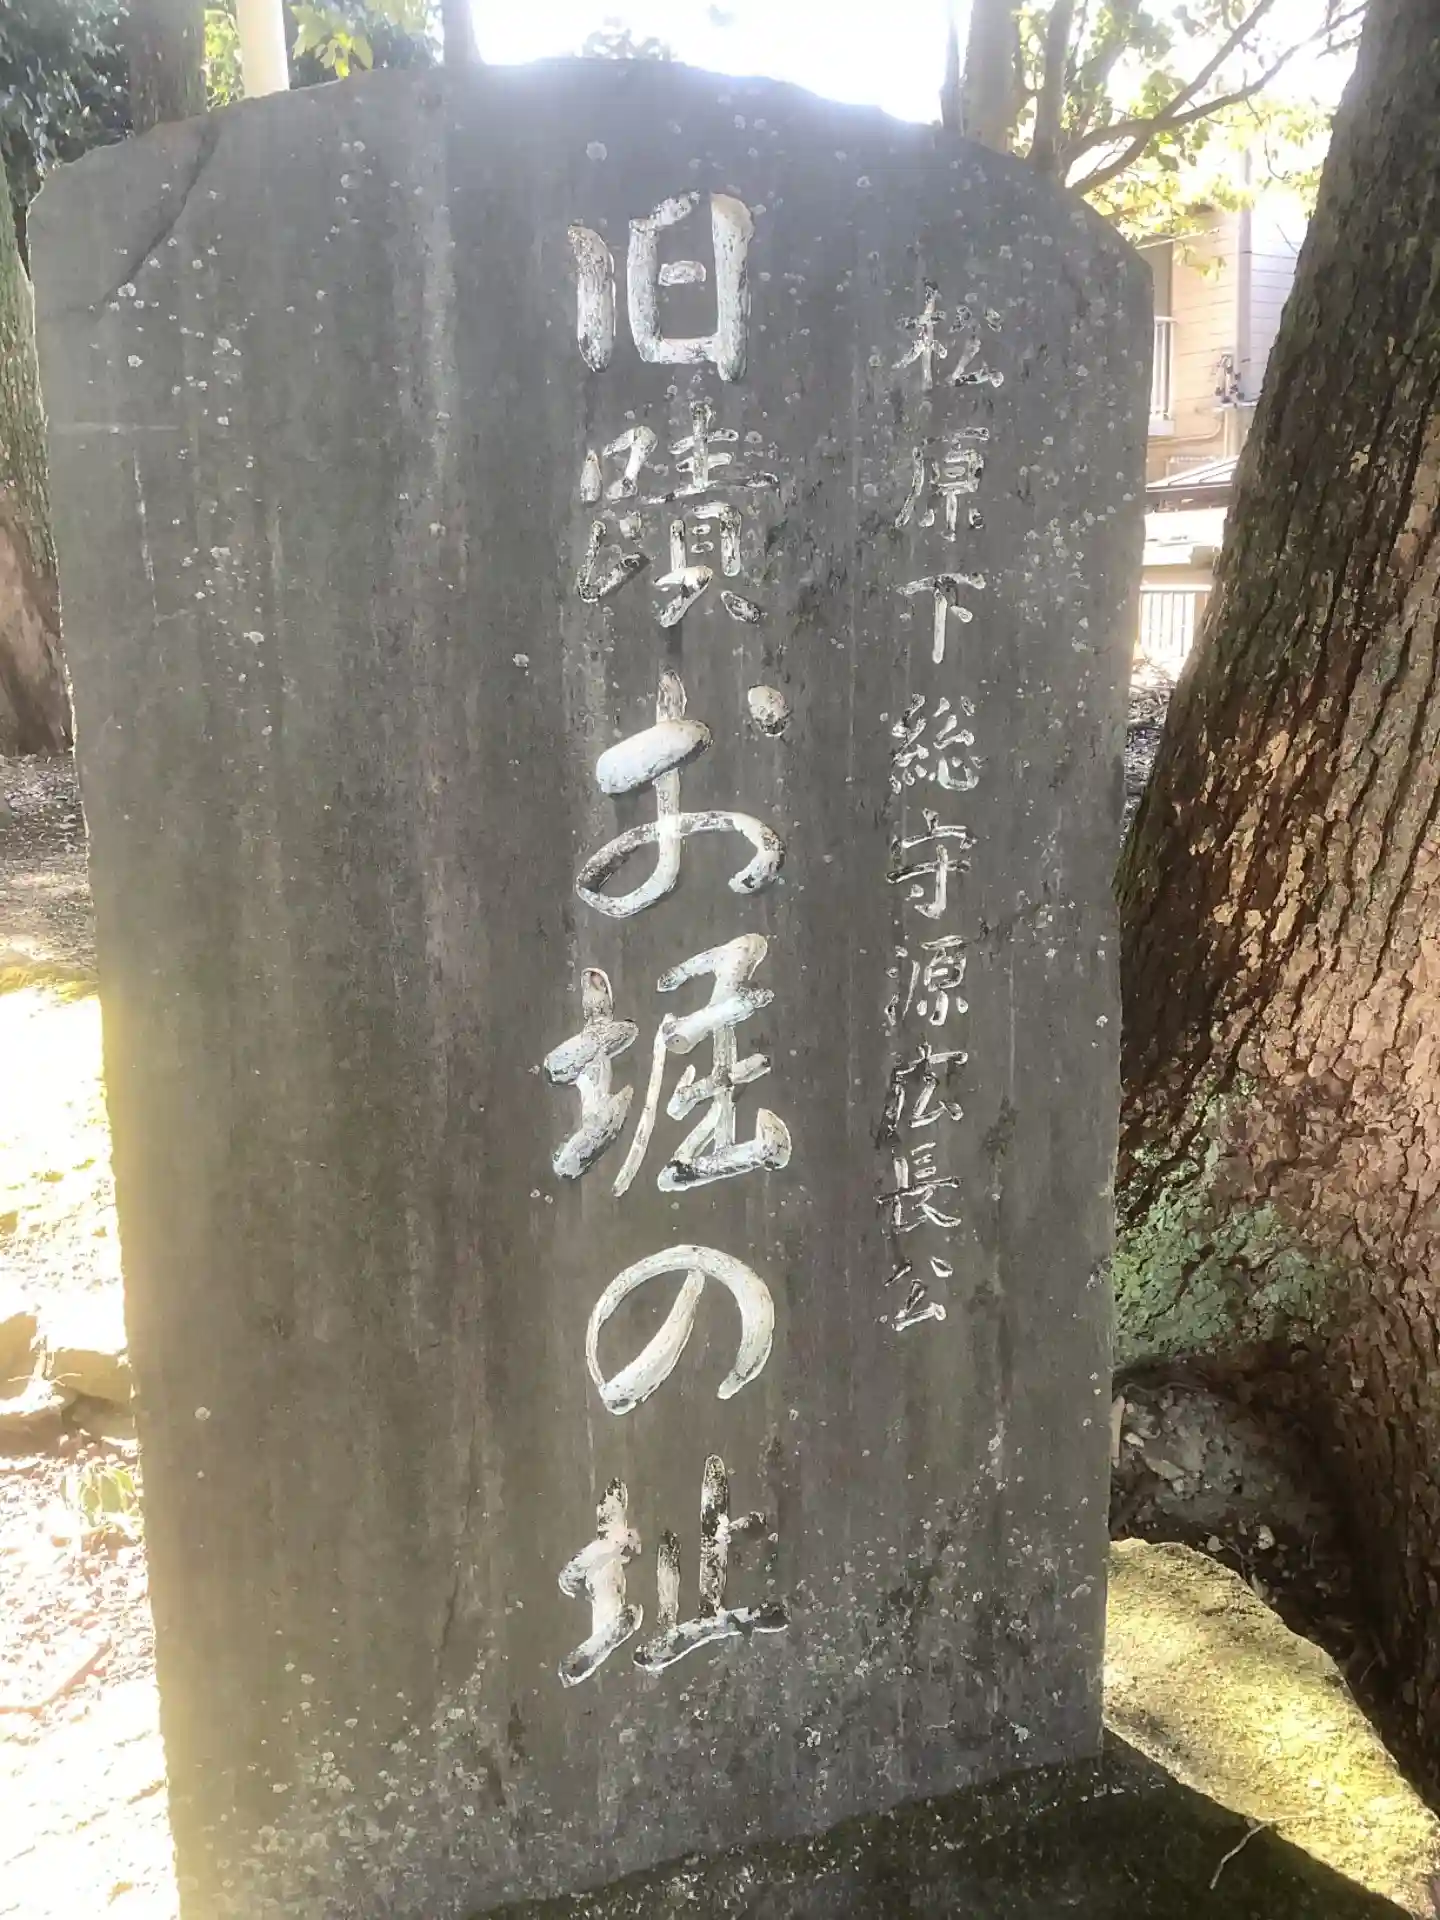 松原下総守源宏長公
旧蹟お堀の址